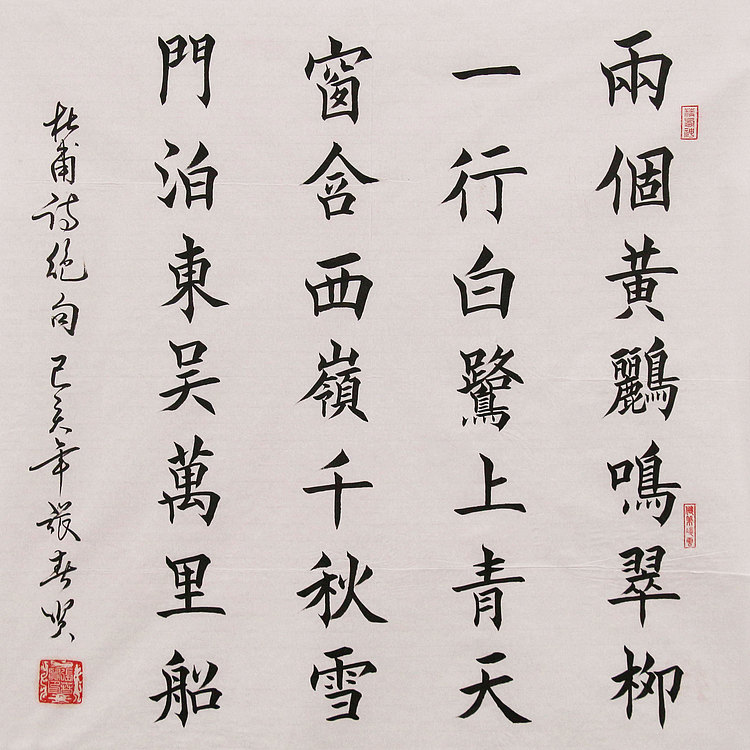 兩個黃鸝鳴翠柳
一行白鷺上青天
窗含西嶺千秋雪
門泊東吴萬里船
杜甫诗绝句己亥年